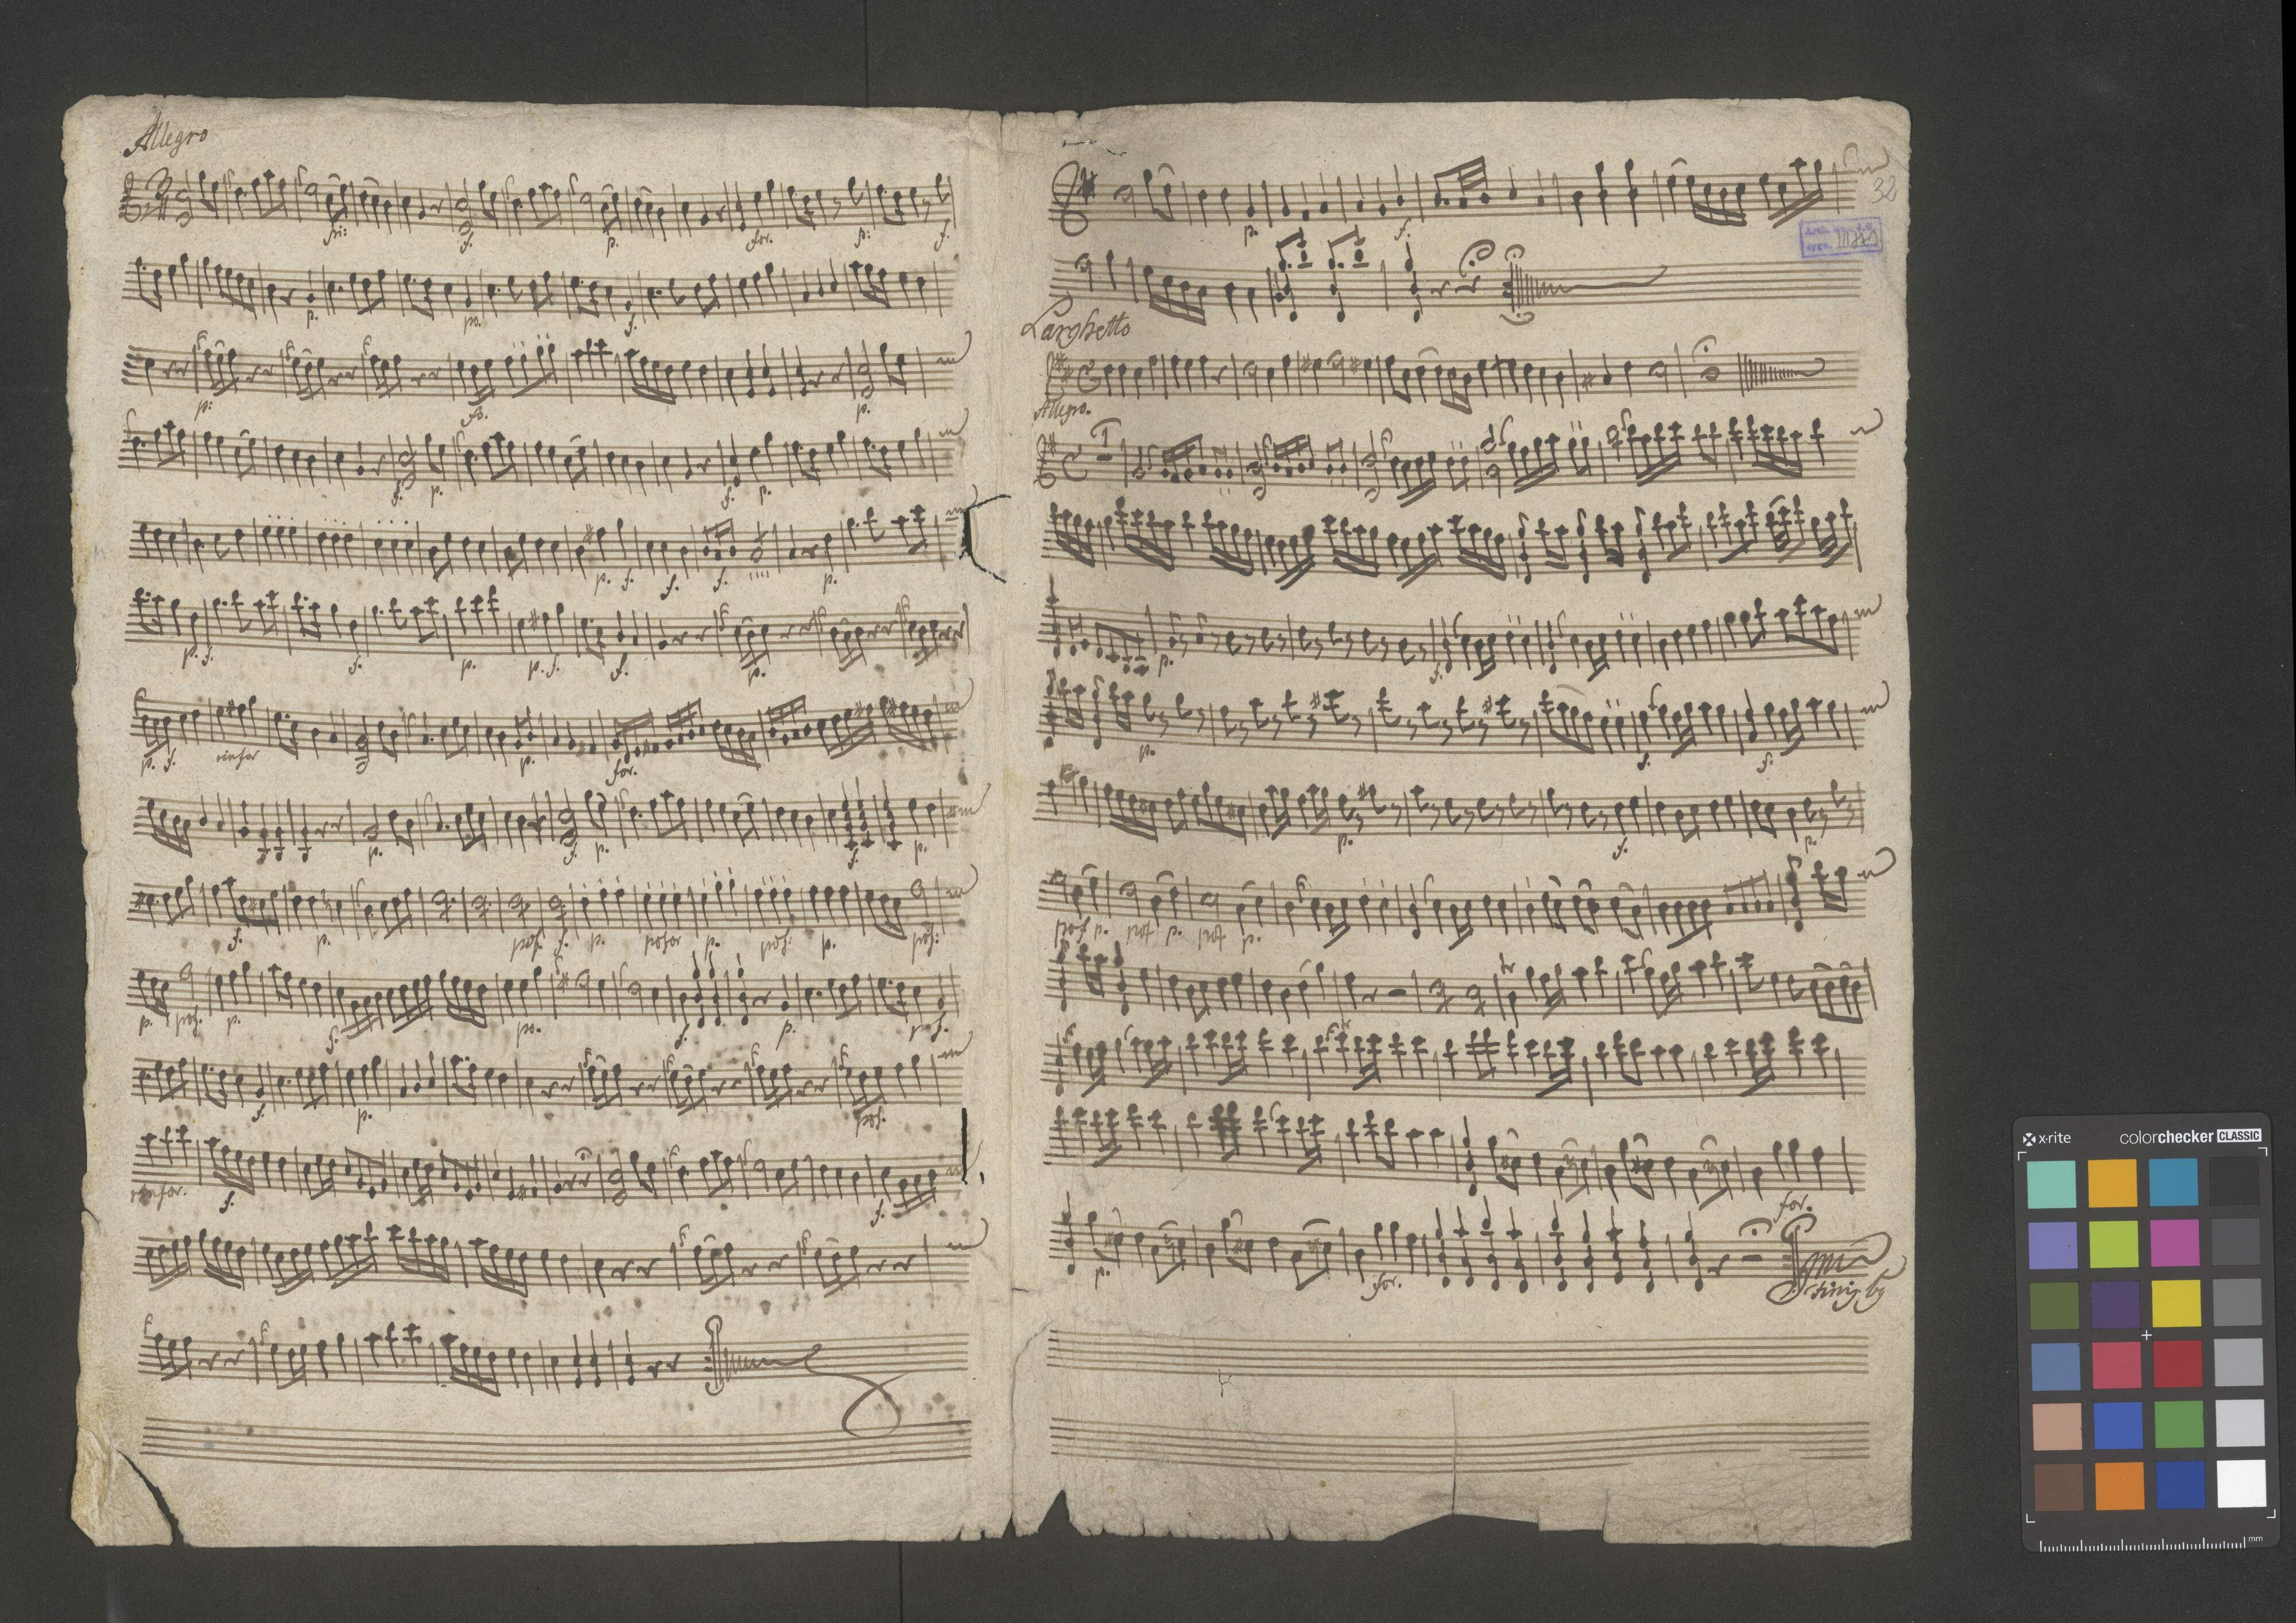 Allegro
pi: f. p. for. p: f.
p. po. f.
p: fo. p.
f. p. f. p.
p. f. f. f. p.
p. f. f. p. p. f. f. p.
p. f. rinfor p. for.
p. f. p. f. p.
f. p. pof: f. p. pofor p. pof: p. pof:
p. pof. p. f. po. f. p.
f. p. pof.
rinfor. f. f.
32
p. f.
Larghetto
Allegro.
1
p. f.
p. f. f.
p. f. p.
pof p. pof p. pof p.
for.
p. for.
x·rite colorchecker CLASSIC
mm